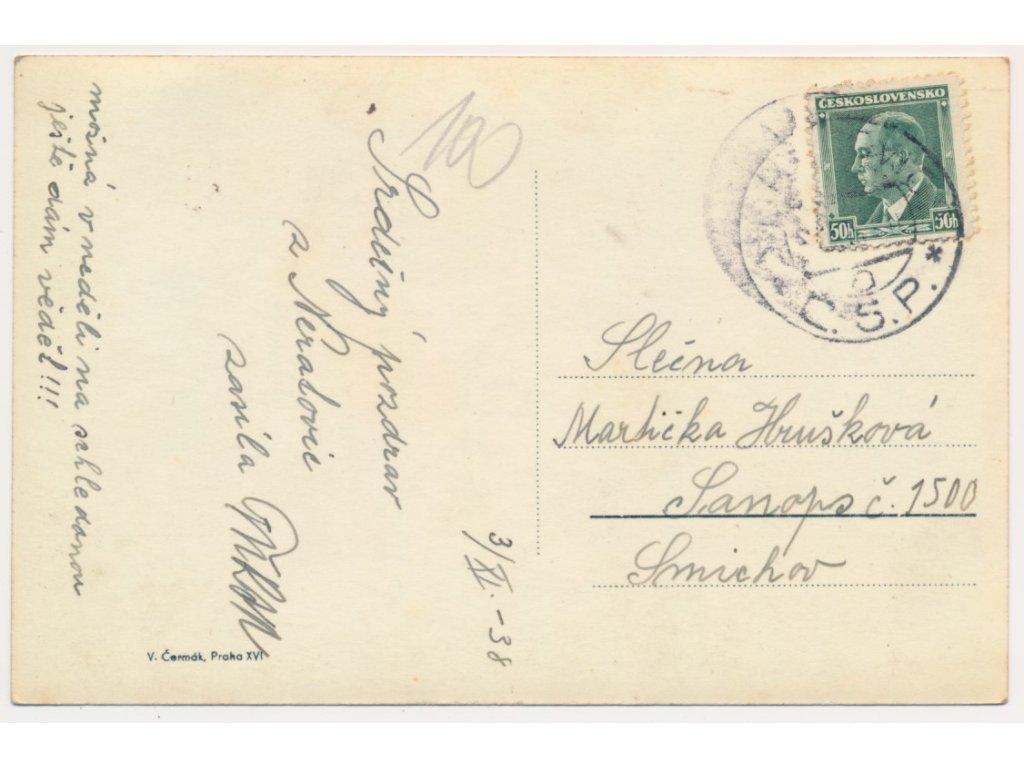 100
Srdečný pozdrav
z Neratovic
zasílá
3/XI.-38
možná v neděli na schledanou
ještě dám vědět!!!
V. Čermák, Praha XVI
ČESKOSLOVENSKO
50h 50h
Č.S.P. *
Slečna
Martička Hrušková
Sanops č. 1500
Smichov